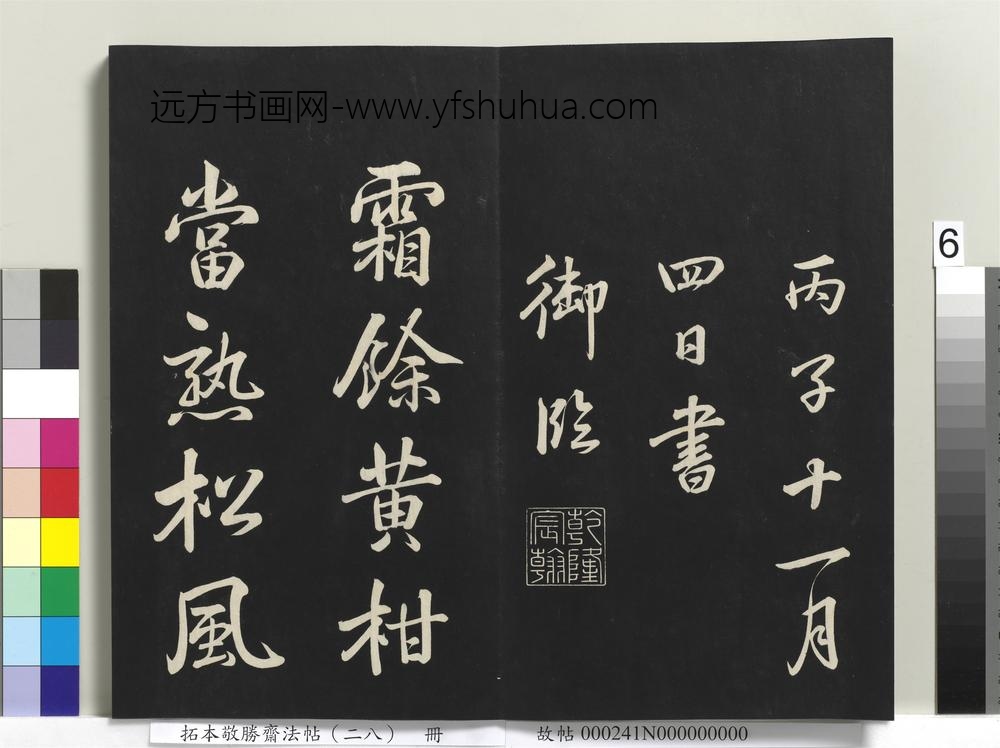 远方书画网-www.yfshuhua.com
丙子十一月
四日書
御臨
乾隆
宸翰
霜餘黄柑
當熟松風
6
拓本敬勝齋法帖(二八) 冊
故帖 000241N000000000